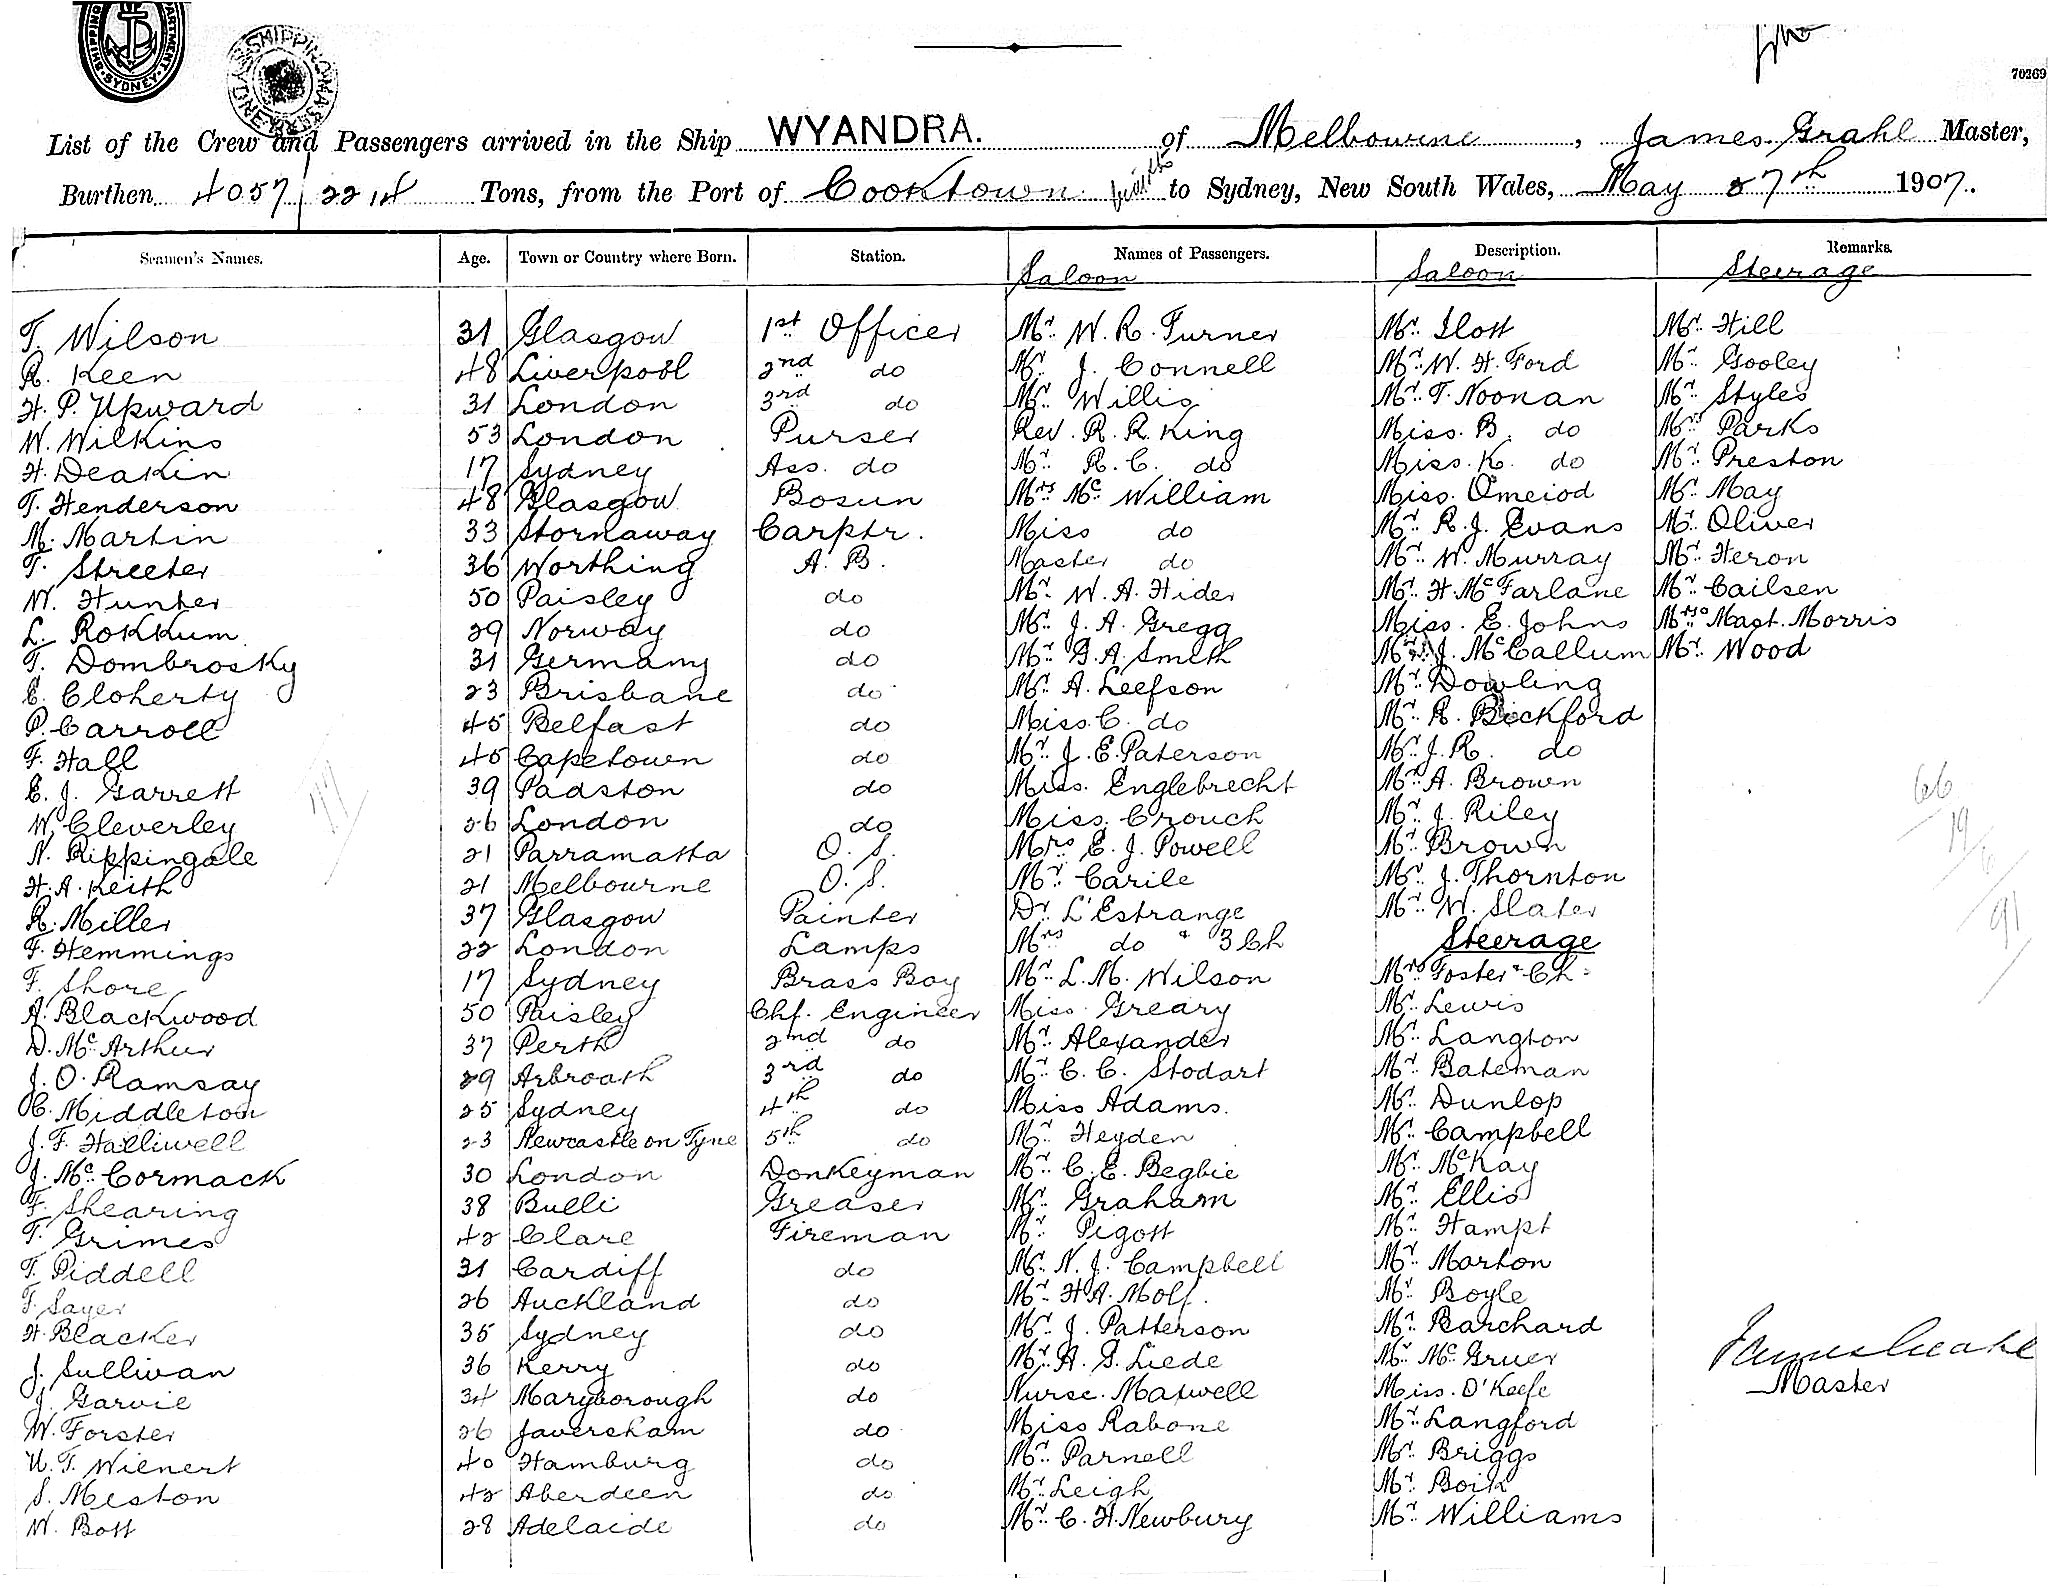 SHIPPING DEPARTMENT. SYDNEY
SHIPPING MASTER SYDNEY
70369
List of the Crew and Passengers arrived in the Ship WYANDRA. of Melbourne, James Grahl Master,
Burthen 4057/2214 Tons, from the Port of Cooktown to Sydney, New South Wales, May 27th 1907.
Seamen's Names. Age. Town or Country where Born. Station. Names of Passengers. Description. Remarks.
Saloon Saloon Steerage
T. Wilson 31 Glasgow 1st Officer Mr. W. R. Turner Mr. Slott Mr. Hill
R. Keen 48 Liverpool 2nd do Mr. J. Connell Mr. W. H. Ford Mr. Gooley
H. P. Upward 31 London 3rd do Mr. Willis Mr. T. Noonan Mr. Styles
W. Wilkins 53 London Purser Rev. R. R. King Miss. B. do Mrs Parks
H. Deakin 17 Sydney Ass. do Mr. R. C. do Miss. K. do Mr. Preston
T. Henderson 48 Glasgow Bosun Mrs Mc William Miss. Omeiod Mr. May
M. Martin 33 Stornaway Carptr. Miss do Mr. R. J. Evans Mr. Oliver
T. Streeter 36 Worthing A. B. Master do Mr. W. Murray Mr. Heron
W. Hunter 50 Paisley do Mr. W. A. Hider Mr. H. McFarlane Mr. Cailsen
L. Rokkum 29 Norway do Mr. J. A. Gregg Miss. E. Johns Mrs & Mast. Morris
T. Dombrosky 31 Germany do Mr. G. A. Smith Mr. J. McCallum Mr. Wood
E. Cloherty 23 Brisbane do Mr. A. Leefson Mr. Dowling
P. Carroll 45 Belfast do Miss. C. do Mr. R. Bickford
F. Hall 45 Capetown do Mr. J. E. Paterson Mr. J. R. do
E. J. Garrett 39 Padston do Miss. Englebrecht Mr. A. Brown
W. Cleverley 26 London do Miss. Crouch Mr. J. Riley
N. Rippingale 21 Parramatta O. S. Mrs E. J. Powell Mr. Brown
H. A. Keith 21 Melbourne O. S. Mr. Carile Mr. J. Thornton
R. Miller 37 Glasgow Painter Dr. L'Estrange Mr. W. Slater
F. Hemmings 22 London Lamps Mrs do & 3 Ch Steerage
F. Shore 17 Sydney Brass Boy Mr. L. M. Wilson Mrs Foster & Ch
A. Blackwood 50 Paisley Chf. Engineer Miss Greary Mr. Lewis
D. McArthur 37 Perth 2nd do Mr. Alexander Mr. Langton
J. O. Ramsay 29 Arbroath 3rd do Mr. C. C. Stodart Mr. Bateman
C. Middleton 25 Sydney 4th do Miss Adams. Mr. Dunlop
J. F. Halliwell 23 Newcastle on Tyne 5th do Mr. Heyden Mr. Campbell
J. McCormack 30 London Donkeyman Mr. C. E. Begbie Mr. McKay
F. Shearing 38 Bulli Greaser Mr. Graham Mr. Ellis
T. Grimes 42 Clare Fireman Mr. Pigott Mr. Hampt
T. Piddell 31 Cardiff do Mr. N. J. Campbell Mr. Morton
F. Sayer 26 Auckland do Mr. H A. Molf. Mr. Boyle
H. Blacker 35 Sydney do Mr. J. Patterson Mr. Barchard
J. Sullivan 36 Kerry do Mr. A. S. Liede Mr. McGruer
J. Garvie 34 Maryborough do Nurse. Maxwell Miss. O'Keefe
W. Forster 26 Faversham do Miss Rabone Mr. Langford
U. T. Wienert 40 Hamburg do Mr. Parnell Mr. Briggs
S. Meston 42 Aberdeen do Mr. Leigh Mr. Boik
W. Bott 28 Adelaide do Mr. C. H. Newbury Mr. Williams
77
66
19
/91
James Grahl
Master